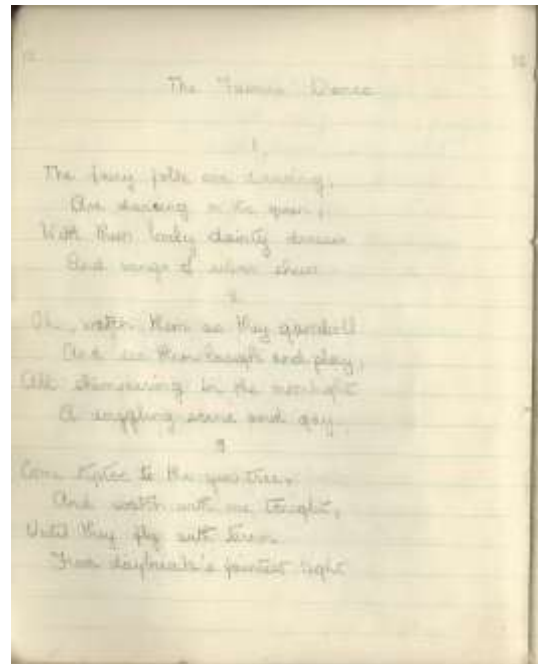 The Fairies Dance
1.
The fairy folk are dancing,
Are dancing on the green,
With their lovely dainty dresses
And wings of silver sheen
2
Oh, watch them as they gamboll
And see them laugh and play,
All shimmering in the moonlight
A dazzling scene and gay.
3
Come tiptoe to the yew trees,
And watch with me tonight,
Until they fly with
From daybreak's faintest light